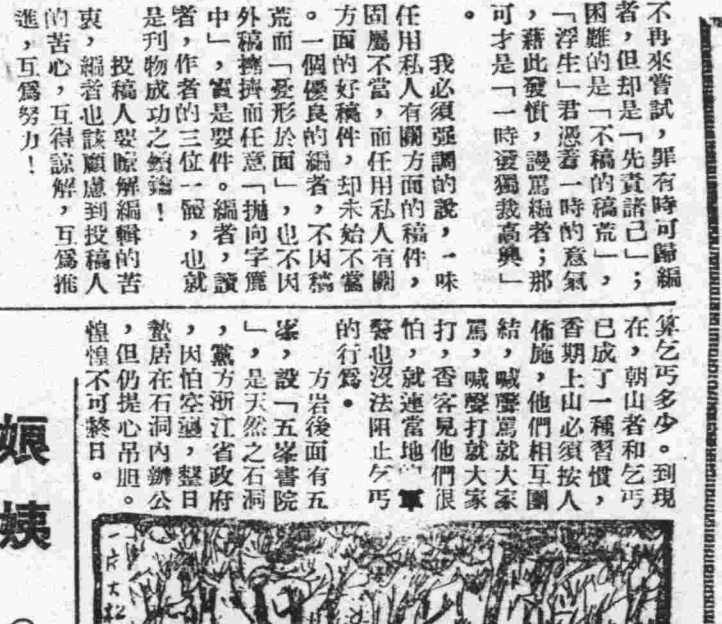 不再來嘗試，罪有時可歸編
者，但却是「先責諸己」；
困難的是「不稿的稿荒」，
「浮生」君憑着一時的意氣
，藉此發憤，謾罵編者；那
可才是「一時發獨裁高興」
。
我必須强調的說，一味
任用私人有關方面的稿件，
固屬不當，而任用私人有關
方面的好稿件，却未始不當
。一個優良的編者，不因稿
荒而「憂形於面」，也不因
外稿擠擠而任意「拋向字簏
中」，實是要件。編者，讀
者，作者的三位一體，也就
是刊物成功之鎖鑰！
投稿人要瞭解編輯的苦
衷，編者也該顧慮到投稿人
的苦心，互得諒解，互爲推
進，互爲努力！
算乞丐多少。到現
在，朝山者和乞丐
已成了一種習慣，
香期上山必須按人
佈施，他們相互團
結，喊聲罵就大家
罵，喊聲打就大家
打，香客見他們很
怕，就連當地軍
警也沒法阻止乞丐
的行爲。
方岩後面有五
峯，設「五峯書院
」，是天然之石洞
，黨方浙江省政府
，因怕空襲，整日
蟄居在石洞內辦公
，但仍提心吊胆。
惶惶不可終日。
姨
一片大松